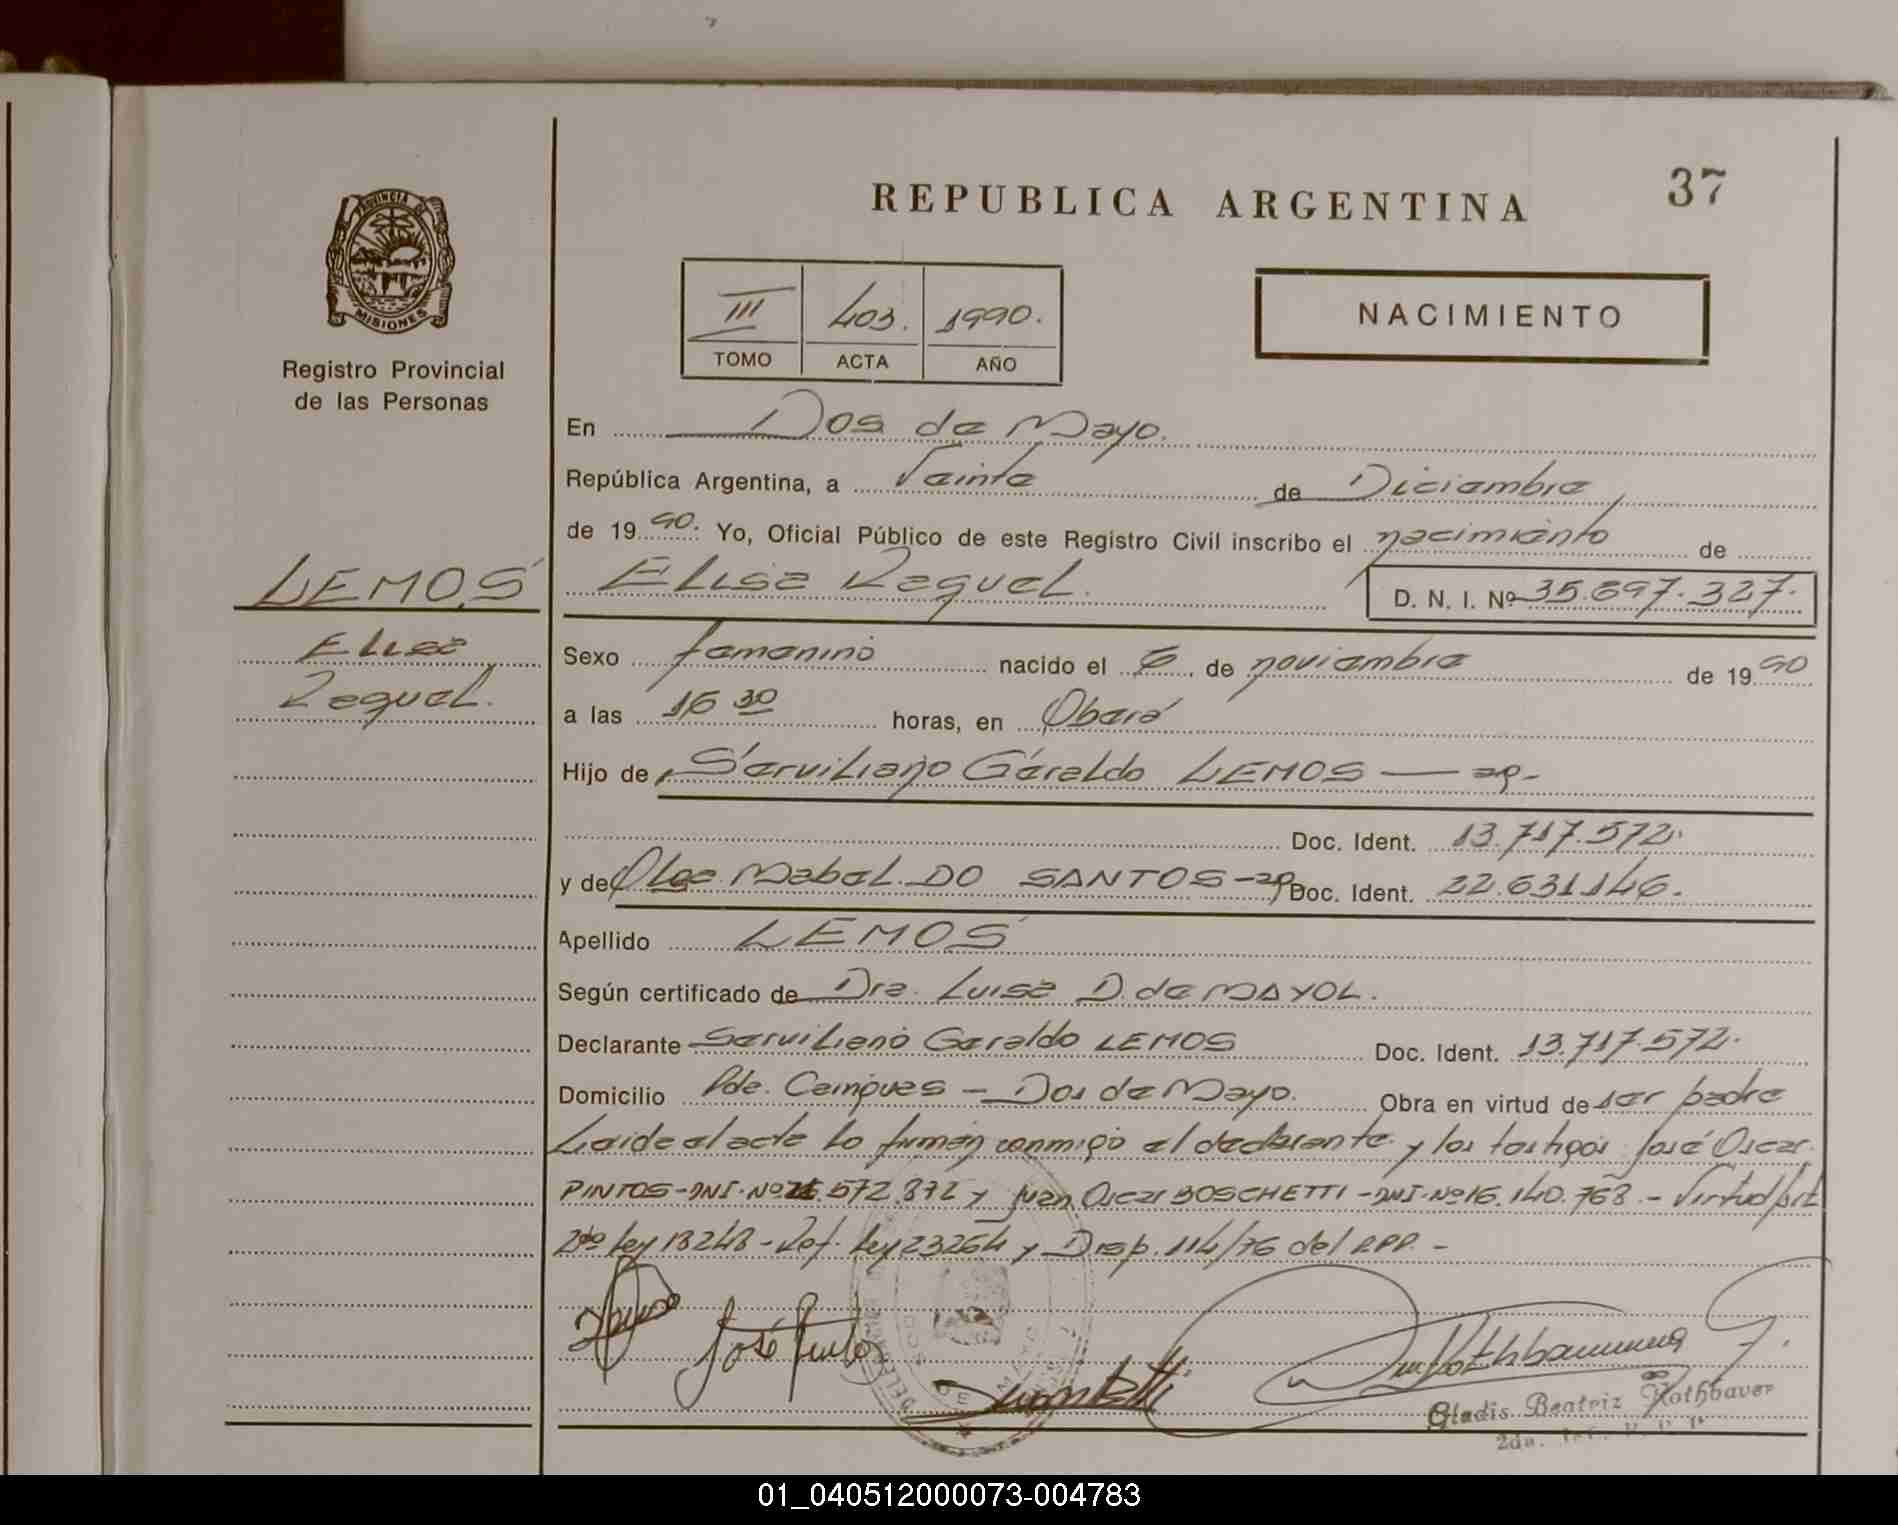 REPUBLICA ARGENTINA
37
PROVINCIA DE
MISIONES
Registro Provincial
de las Personas
III 403. 1990.
TOMO ACTA AÑO
NACIMIENTO
En Dos de Mayo.
República Argentina, a Veinte de Diciembre
de 1990. Yo, Oficial Público de este Registro Civil inscribo el nacimiento de
LEMOS
Elisa Raquel.
Elisa Raquel.
D. N. I. Nº 35.697.327.
Sexo femenino nacido el 6, de noviembre de 1990
a las 16 30 horas, en Oberá
Hijo de Serviliano Geraldo LEMOS — ar-
Doc. Ident. 13.717.572.
y de Olga Mabel. DO SANTOS - ar Doc. Ident. 22.631.146.
Apellido LEMOS
Según certificado de Dra. Luisa D. de MAYOL.
Declarante Serviliano Geraldo LEMOS Doc. Ident. 13.717.572.
Domicilio Pde. Cainguas - Dos de Mayo. Obra en virtud de ser padre
Leida el acta lo firman conmigo el declarante y los testigos José Oscar
PINTOS-DNI-Nº 572.872 y Juan Oscar BOSCHETTI-DNI-Nº16.140.768.- Virtud Art
2do Ley 18248- Ref. Ley 23264 y Disp. 114/76 del RPP. -
José Pinto
DOS DE MAYO
Gladis Beatriz Rothbauer
2da.
01_040512000073-004783